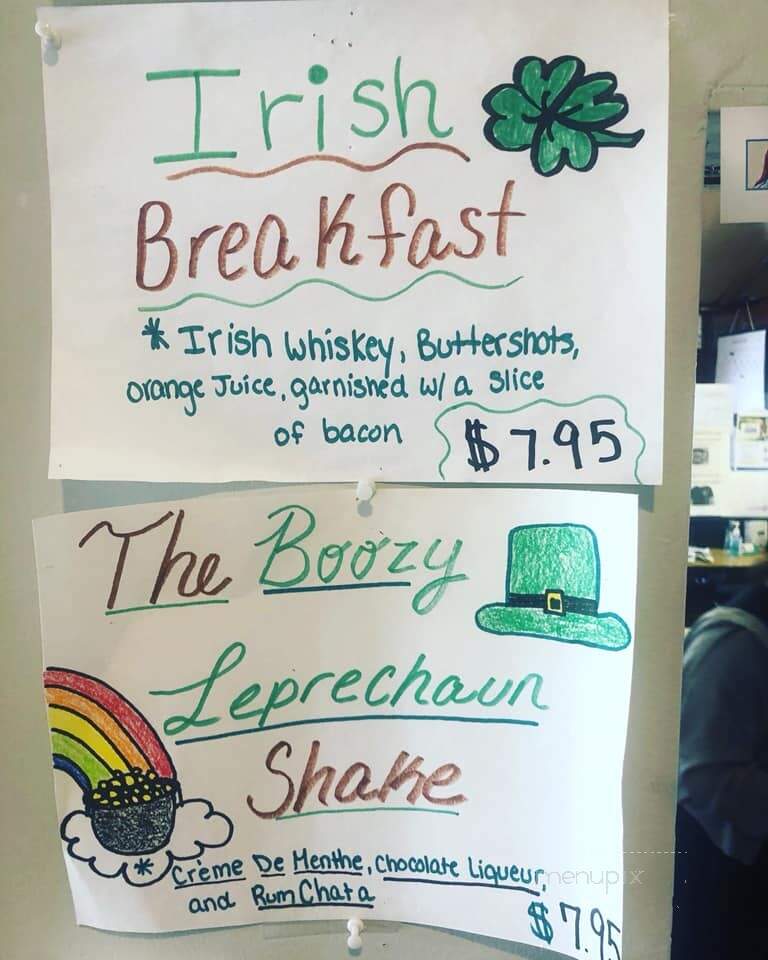 Irish
Breakfast
* Irish Whiskey, Buttershots,
orange Juice, garnished w/ a slice
of bacon
$7.95
The Boozy
Leprechaun
Shake
* Crème De Menthe, Chocolate Liqueur,
and RumChata
$7.95
menupix